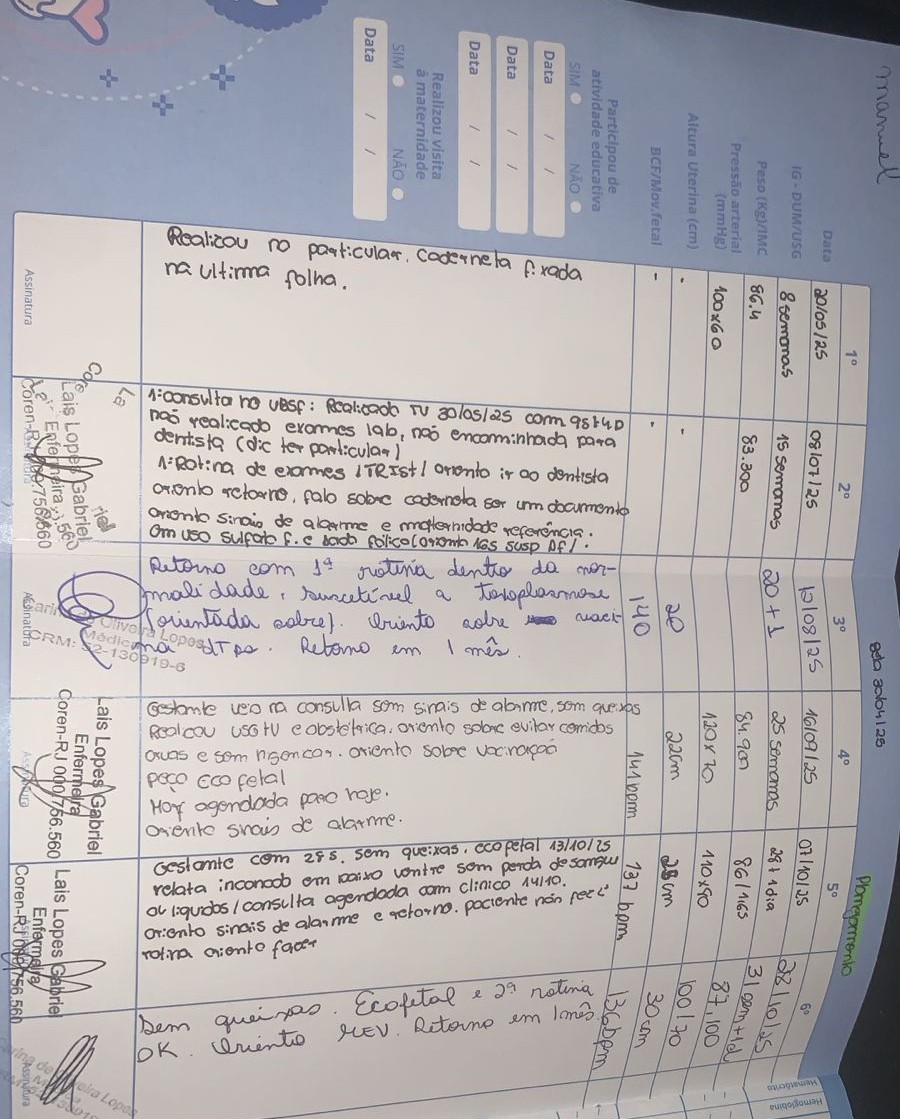 manuel
gata 30/04/25
Planejamento
1º
2º
3º
4º
5º
6º
Data
20/05/25
08/07/25
12/08/25
16/09/25
07/10/25
28/10/25
IG - DUM/USG
8 semanas
15 semanas
20 + 1
25 semanas
28+1 dia
Peso (Kg)/IMC
86.4
83.300
84.900
86/165
87,100
Pressão arterial
(mmHg)
100x60
120x70
110x90
100/70
Altura Uterina (cm)
-
-
20
22cm
28cm
30cm
BCF/Mov.fetal
-
-
140
141bpm
137 bpm
136bpm
Participou de
atividade educativa
SIM
NÃO
Data / /
Data / /
Data / /
Realizou visita
à maternidade
SIM
NÃO
Data / /
Realizou no particular. Caderneta fixada
na ultima folha.
Assinatura
1ªconsulta no UBSF: Realizado TV 30/05/25 com 9s+4D
não realizado exames lab, não encaminhada para
dentista (dic ter particular)
1ª Rotina de exames / TRIst / oriento ir ao dentista
oriento retorno, falo sobre caderneta ser um documento
oriento sinais de alarme e maternidade referência.
Em uso sulfato f. e
Lais Lopes Gabriel
Enfermeira
Coren-RJ 000.756.560
Retorno com 1ª rotina dentro da nor-
malidade, suscetível a toxoplasmose
(orientada sobre). Oriento sobre vaci-
na dTpa. Retorno em 1 mês.
Oliveira Lopes
Médica
CRM: 52-130919-6
Assinatura
Gestante veio na consulta sem sinais de alarme, sem queixas
Realizou USG TV e obstétrica. oriento sobre evitar comidas
cruas e sem higenizar. oriento sobre vacinação
peço Eco fetal
agendada para hoje.
Oriento sinais de alarme.
Lais Lopes Gabriel
Enfermeira
Coren-RJ 000.756.560
Assinatura
Gestante com 28s. sem queixas. eco fetal 13/10/25
relata incomodo em baixo ventre sem perda de sangue
ou liquidos / consulta agendada com clinico 14/10.
Oriento sinais de alarme e retorno. paciente não fez 2ª
rotina oriento fazer
Lais Lopes Gabriel
Enfermeira
Coren-RJ 000.756.560
Sem queixas. Ecofetal e 2ª rotina
OK. Oriento MEV. Retorno em 1 mês.
Assinatura
Hematócrito
Hemoglobina